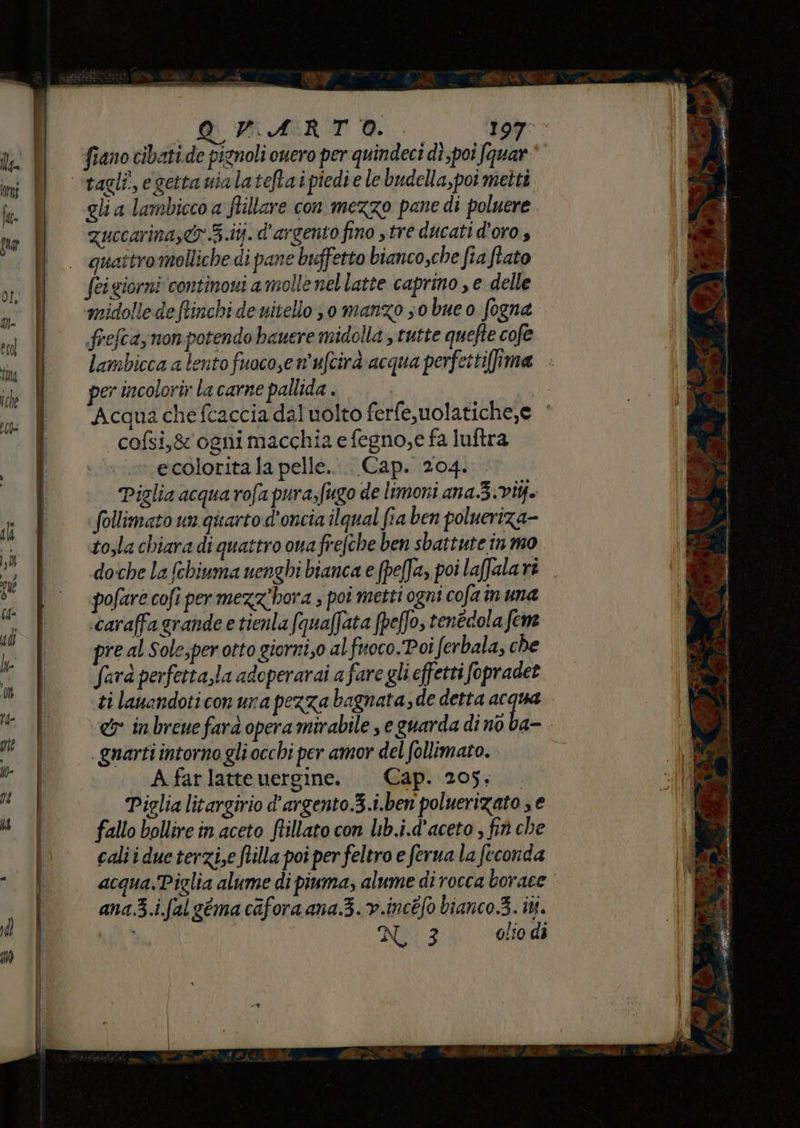 QVARTO. 197
ſiano cibati de pignoli ouero per quindeci dì, poi ſquar
tagli, e getta uia la teſta i piedi e le budella, poi metti
gli a lambicco a ſtillare con mezzo pane di poluere
zuccarina, & ℥.iij. d'argento fino, tre ducati d'oro,
quattro molliche di pane buffetto bianco, che ſia ſtato
ſei giorni continoui a molle nel latte caprino, e delle
midolle de ſtinchi de uitello, o manzo, o bue o ſogna
freſca, non potendo hauere midolla, tutte queſte coſe
lambicca a lento fuoco, e n'uſcirà acqua perfettiſſima
per incolorir la carne pallida.
Acqua che ſcaccia dal uolto ferſe, uolatiche, e
coſsi, & ogni macchia e ſegno, e fa luſtra
e colorita la pelle. Cap. 204.
Piglia acqua roſa pura, ſugo de limoni ana.℥.viij.
ſollimato un quarto d'oncia ilqual ſia ben polueriza-
to, la chiara di quattro oua freſche ben sbattute in mo
do che la ſchiuma uenghi bianca e ſpeſſa, poi laſſala ri
poſare coſi per mezz'hora, poi metti ogni coſa in una
caraffa grande e tienla ſquaſſata ſpeſſo, tenēdola ſem
pre al Sole, per otto giorni, o al fuoco. Poi ſerbala, che
ſarà perfetta, la adoperarai a fare gli effetti ſopradet
ti lauandoti con una pezza bagnata, de detta acqua
& in breue farà opera mirabile, e guarda di nō ba-
gnarti intorno gli occhi per amor del ſollimato.
A far latte uergine. Cap. 205.
Piglia litargirio d'argento.℥.i. ben poluerizato, e
fallo bollire in aceto ſtillato con lib.i. d'aceto, fin che
cali i due terzi, e ſtilla poi per feltro e ſerua la ſeconda
acqua. Piglia alume di piuma, alume di rocca borace
ana.℥.i. ſal gēma cāfora ana.℥. v. incēſo bianco.℥. iij.
N 3 olio di